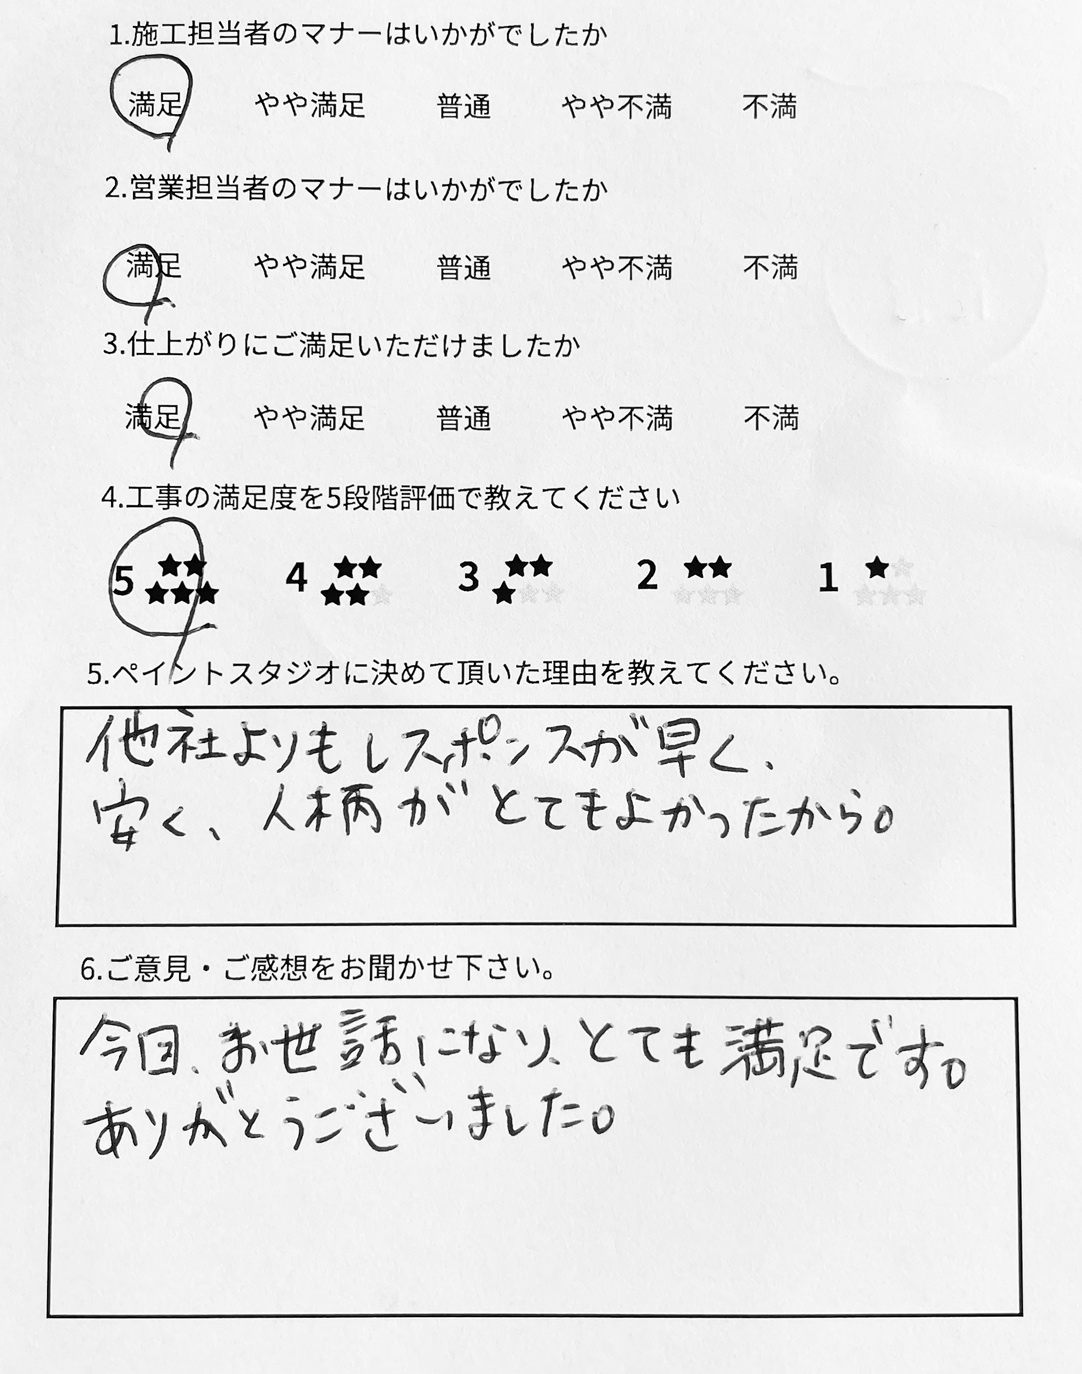 1.施工担当者のマナーはいかがでしたか
満足 やや満足 普通 やや不満 不満
2.営業担当者のマナーはいかがでしたか
満足 やや満足 普通 やや不満 不満
3.仕上がりにご満足いただけましたか
満足 やや満足 普通 やや不満 不満
4.工事の満足度を5段階評価で教えてください
5 ★★★★★ 4 ★★★★★ 3 ★★★★★ 2 ★★★★★ 1 ★★★★★
5.ペイントスタジオに決めて頂いた理由を教えてください。
他社よりもレスポンスが早く、
安く、人柄がとてもよかったから。
6.ご意見・ご感想をお聞かせ下さい。
今回、お世話になり、とても満足です。
ありがとうございました。